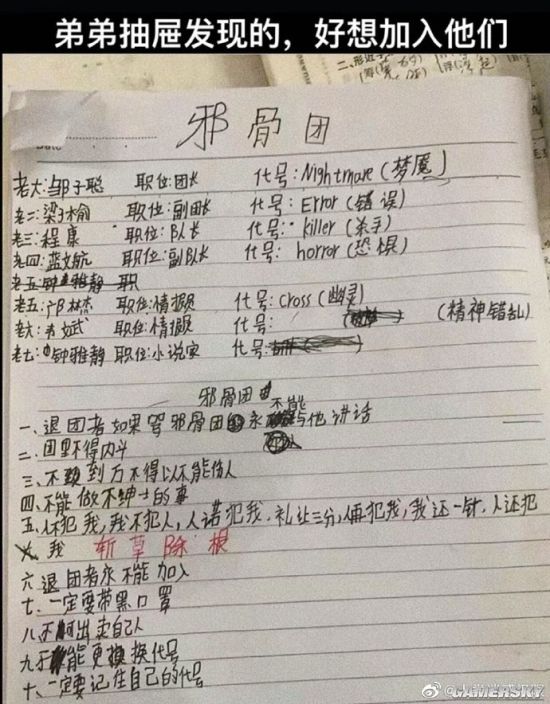 弟弟抽屉发现的，好想加入他们
邪骨团
老大:邹子聪 职位:团长 代号:Nightmare(梦魇)
老二:梁木榆 职位:副团长 代号:Error(错误)
老三:程康 职位:队长 代号:killer(杀手)
老四:蓝文航 职位:副队长 代号:horror(恐惧)
老五钟雅静 职
老五:邝林杰 职位:情报员 代号:cross(幽灵)
老六:文斌 职位:情报员 代号: (精神错乱)
老七:钟雅静 职位:小说家 代号:
邪骨团
一、退团者如果骂邪骨团永不能与他讲话
二、团里不得内斗
三、不到万不得以不能伤人
四、不能做不绅士的事
五、人不犯我,我不犯人,人诺犯我,礼让三分,人再犯我,我还一针,人还犯
我 斩草除根
六、退团者永不能加入
七、一定要带黑口罩
八、不可出卖自己人
九、不能更换代号
十、一定要记住自己的代号
GAMERSKY